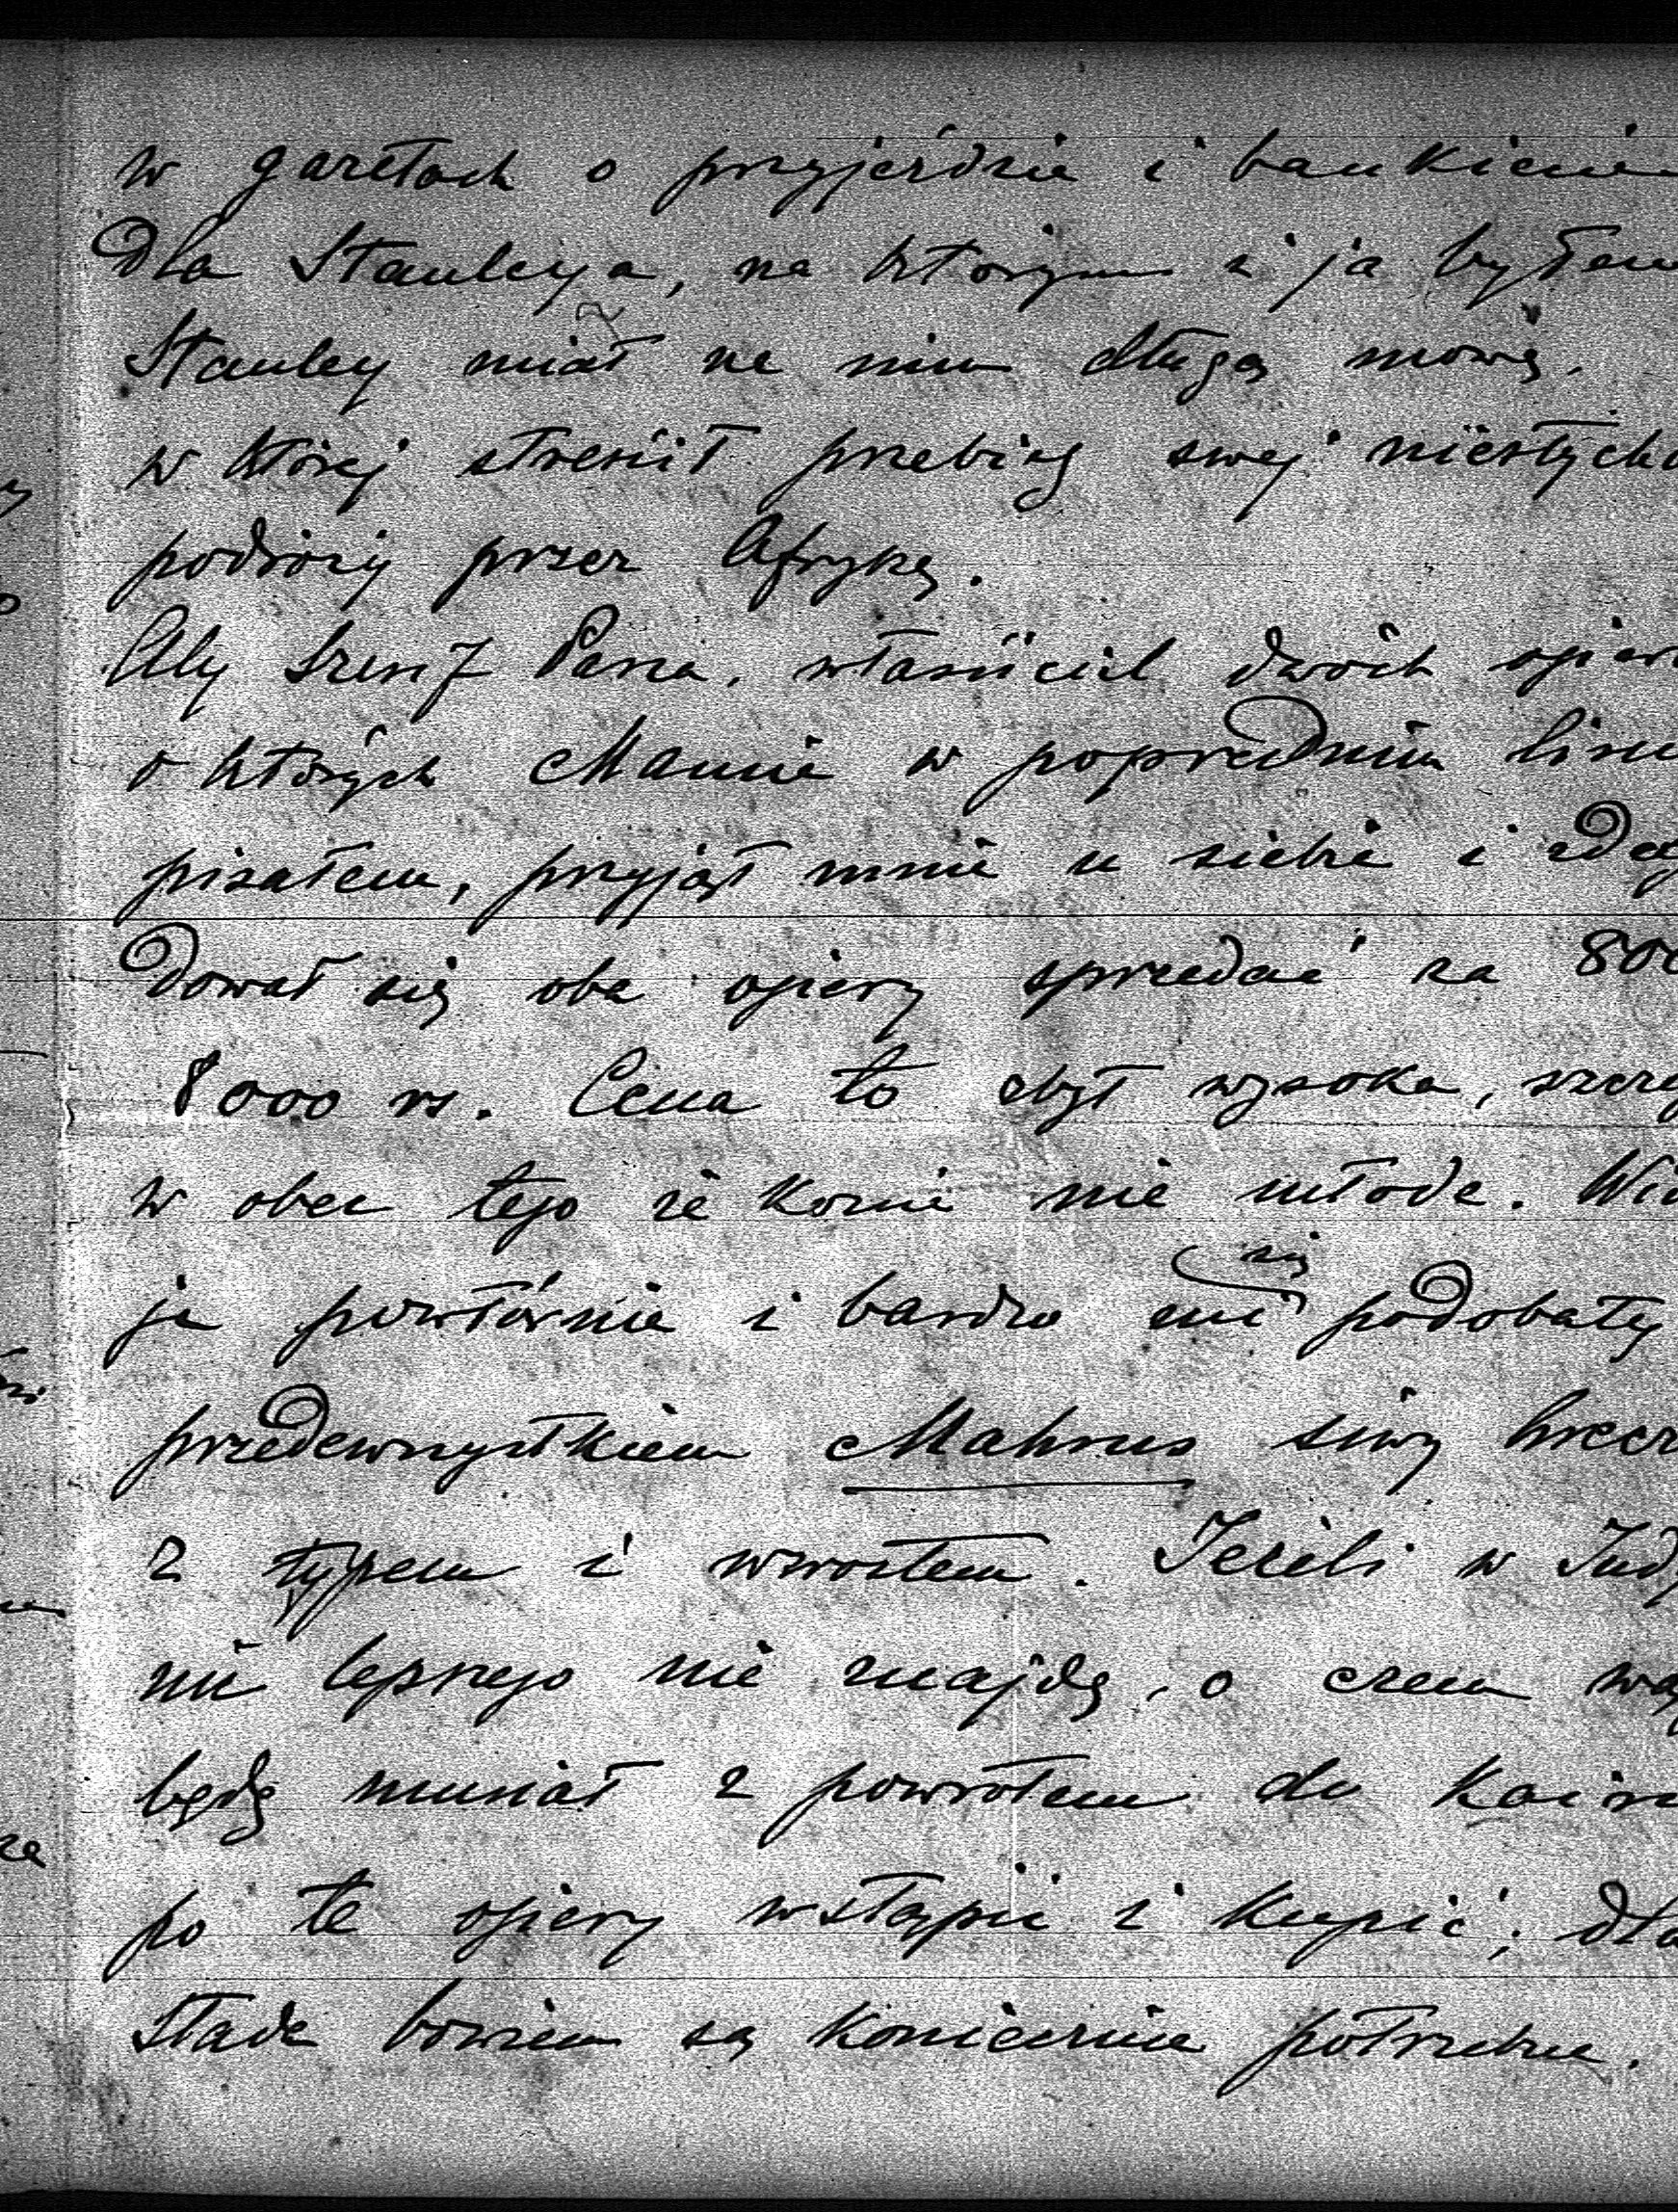 w gazetach o przyjeździe i bankiecie
dla Stanleya, na którym i ja byłem
Stanley miał na nim długą mowę,
w której streścił przebieg swej niesłycha
podróży przez Afrykę.
Aly Szerif Pasza, właściciel dwóch ogier
o których Mamie w poprzednim liście
pisałem, przyjął mnie u siebie i zdecy
dował się oba ogiery sprzedać za 800
8000 rs. Cena to zbyt wysoka, szczeg
w obec tego że konie nie młode. Wid
je powtórnie i bardzo mi się podobały
przedewszystkiem Mahrus siwy hrecz
z typem i wzrostem. Jeżeli w Indy
nic lepszego nie znajdę, o czem wą
będę musiał z powrotem do Kairu
po te ogiery wstąpić i kupić; dla
stada bowiem są koniecznie potrzebne.